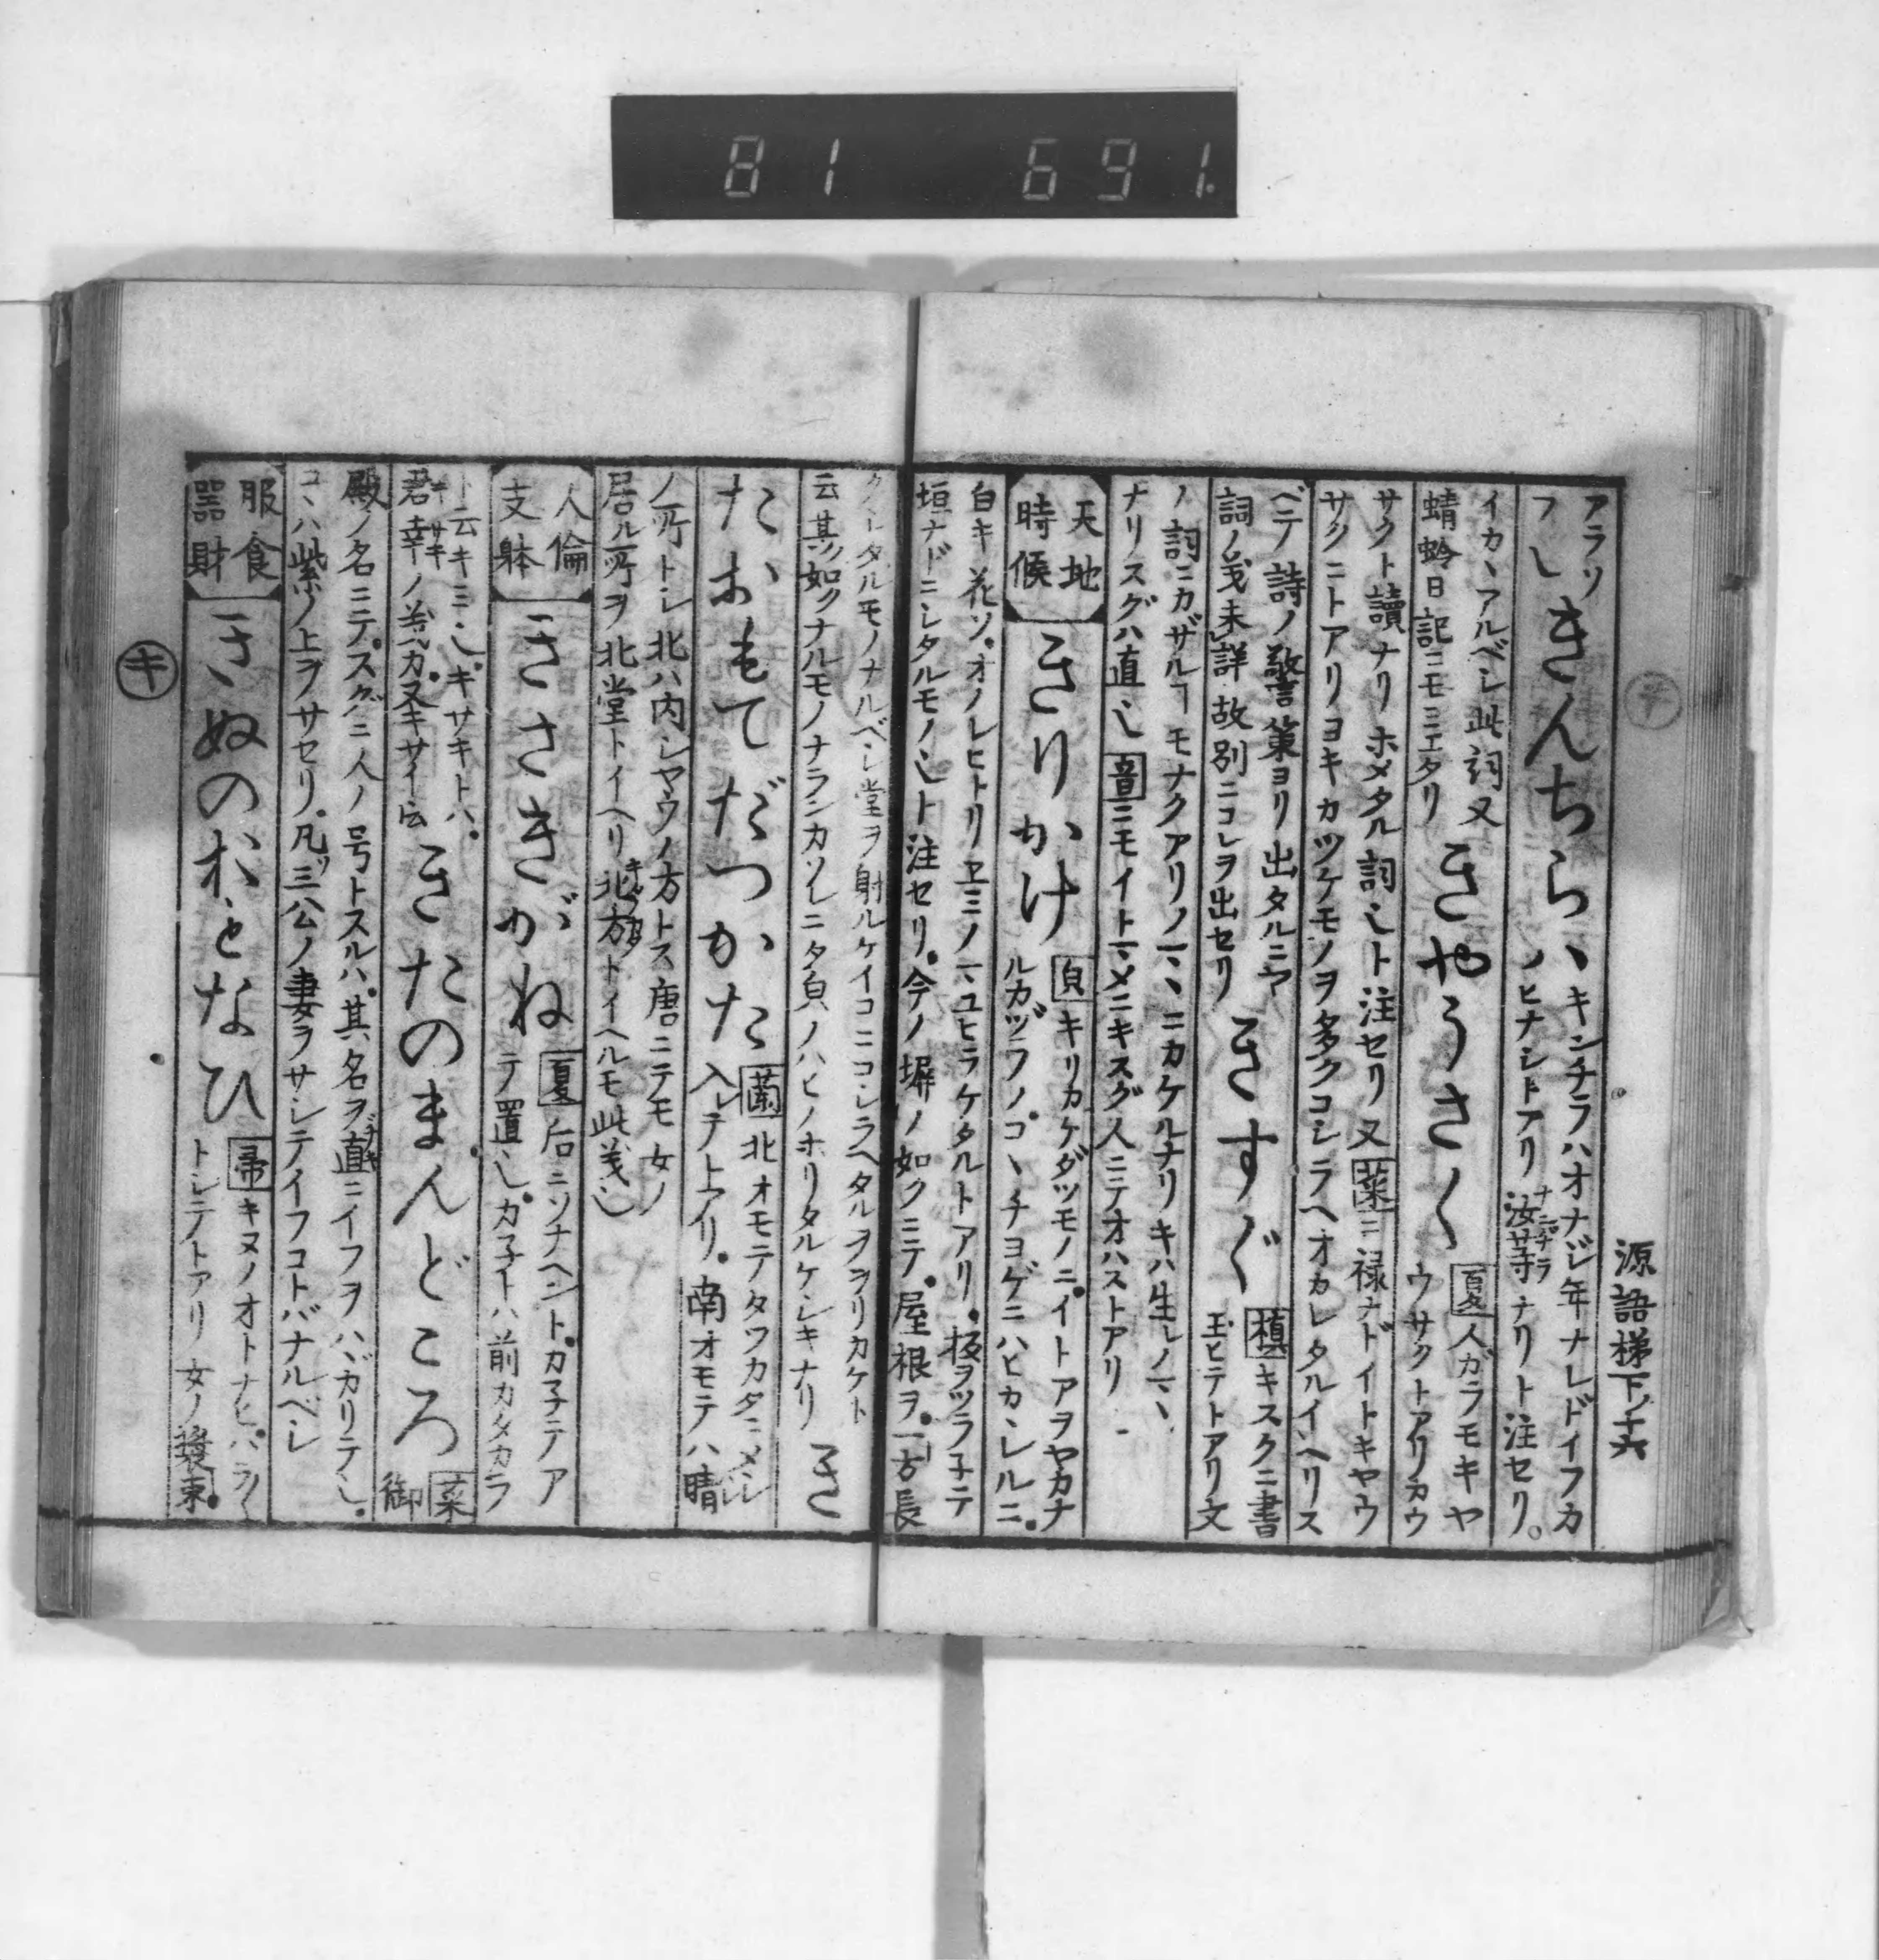 81 691.
源語梯下ノ十六
アラソ
フ〆
きんちら
ハキンチラハオナジ年ナレドイフカ
ノヒナシトアリ汝等ナリト注セリ。
イカヽアルベシ此詞又
蜻蛉日記ニモミエタリ
きやうさく
夏人ガラモキヤ
ウサクトアリカウ
サクト讀ナリホメタル詞也ト注セリ又菜ニ禄ナドイトキヤウ
サクニトアリヨキカツケモノヲ多クコシラヘオカレタルイヘリス
ベテ詩ノ警策ヨリ出タルニヤ
詞ノ義未詳故別ニコレヲ出セリ
きすぐ
槙キスクニ書
玉ヒテトアリ文
ノ詞ニカザルヿモナクアリノマヽニカケルナリキハ生レノマヽ
ナリスグハ直也音ニモイトマメニキスグ人ニテオハストアリ
天地
時候
きりかけ
皃キリカケダツモノニ。イトアヲヤカナ
ルカヅラノ。コヽチヨゲニハヒカヽレルニ。
白キ花ソ。オノレヒトリヱミノマユヒラケタルトアリ。板ヲツラ子テ
垣ナドニシタルモノ也ト注セリ。今ノ塀ノ如クニテ。屋根ヲ。
タルモノナルベシ堂ヲ射ルケイコニコシラヘタルヲヲリカケト
云其如クナルモノナランカソレニ夕皃ノハヒノホリタルケシキナリ
き
たおもてだつかた
蘭北オモテタツカタニメシ
入レテトアリ。南オモテハ晴
ノ所トシ北ハ内シヤウノ方トス唐ニテモ女ノ
居ル所ヲ北堂トイヘリ北方トイヘルモ此義也
人倫
支躰
きさきがね
夏后ニソナヘントカ子テア
テ置也。カ子トハ前カタカラ
ト云キミ也。キサキトハ。
君幸ノ義カ。又キサイ𪜈云
きたのまんどころ
菜
御
殿ノ名ニテ。スグニ人ノ号トスルハ。其名ヲ直ニイフヲハヾカリテ也。
コヽハ紫ノ上ヲサセリ。凡三公ノ妻ヲサシテイフコトバナルベシ
服食
器財
きぬのおとなひ
帚キヌノオトナヒ。ハラ〳〵
トシテトアリ女ノ装束。
キ